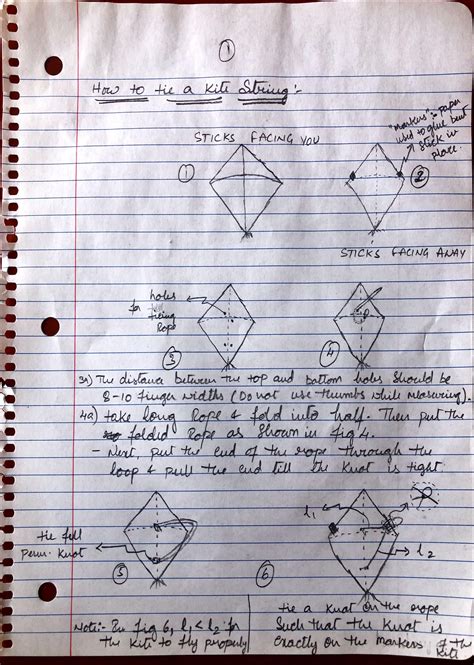 ①
How to tie a Kite String:-
STICKS FACING YOU
"markers":- Paper
used to glue bent
stick in
place.
① ②
STICKS FACING AWAY
holes
for
tieing
Rope
③ ④
3a) The distance between the top and bottom holes should be
8-10 finger widths (Do not use thumbs while measuring).
4a) take long Rope & fold into half. Then put the
folded Rope as shown in fig 4.
- Next, put the end of the rope through the
loop & pull the end till the Knot is tight.
l1
tie full
perm. Knot
l2
⑤ ⑥
Note:- In fig 6, l1 < l2 for
the Kite to fly properly
tie a Knot on the rope
Such that the Knot is
exactly on the markers of the
Kite